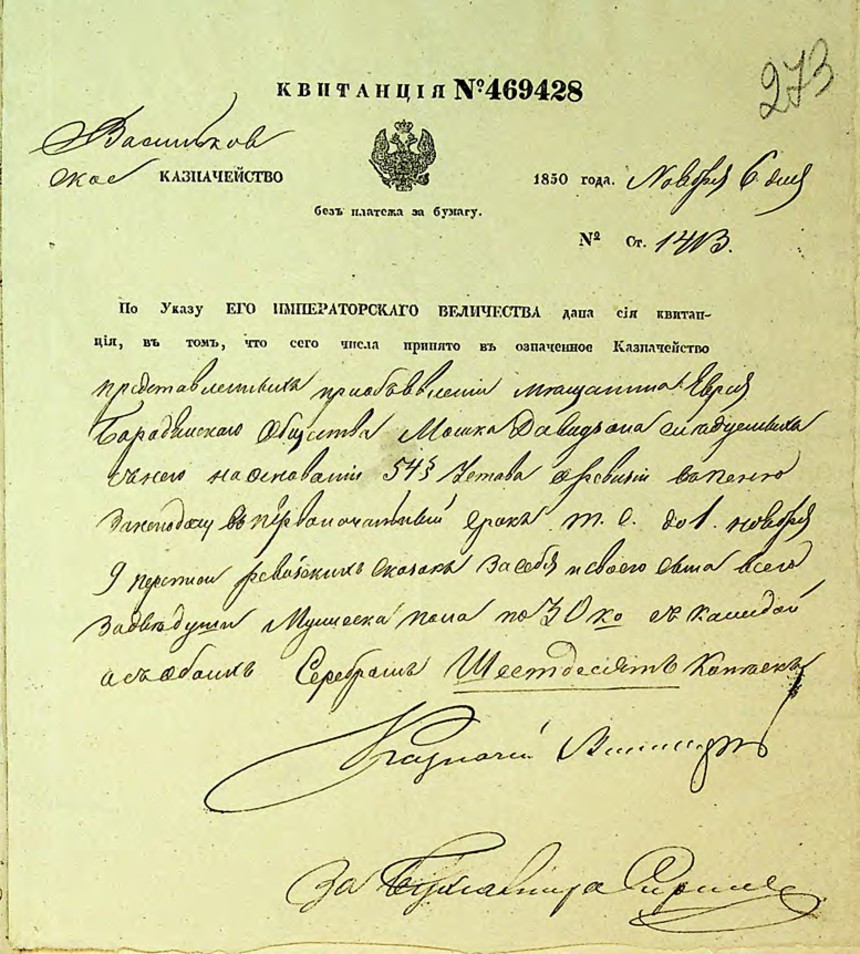 273
КВИТАНЦІЯ № 469428
Васильков
ское КАЗНАЧЕЙСТВО
1850 года. Ноября 6 дня
безъ платежа за бумагу.
№ Ст. 1413.
По Указу ЕГО ИМПЕРАТОРСКАГО ВЕЛИЧЕСТВА дана сія квитан-
ція, въ томъ, что сего числа принято въ означенное Казначейство
представленныхъ при объявленіи мещанина Еврея
Общества Мошка следуемыхъ
съ него на основаніи 54 § Устава о ревизіи
въ первоначальный срокъ т. е. до 1. ноября
ревизскихъ сказокъ за себя и своего сына всего
за две души Мужеска пола по 30 ко съ каждой
а съ обоихъ Серебромъ Шестдесятъ Копеекъ
Казначей
За Бухгалтера